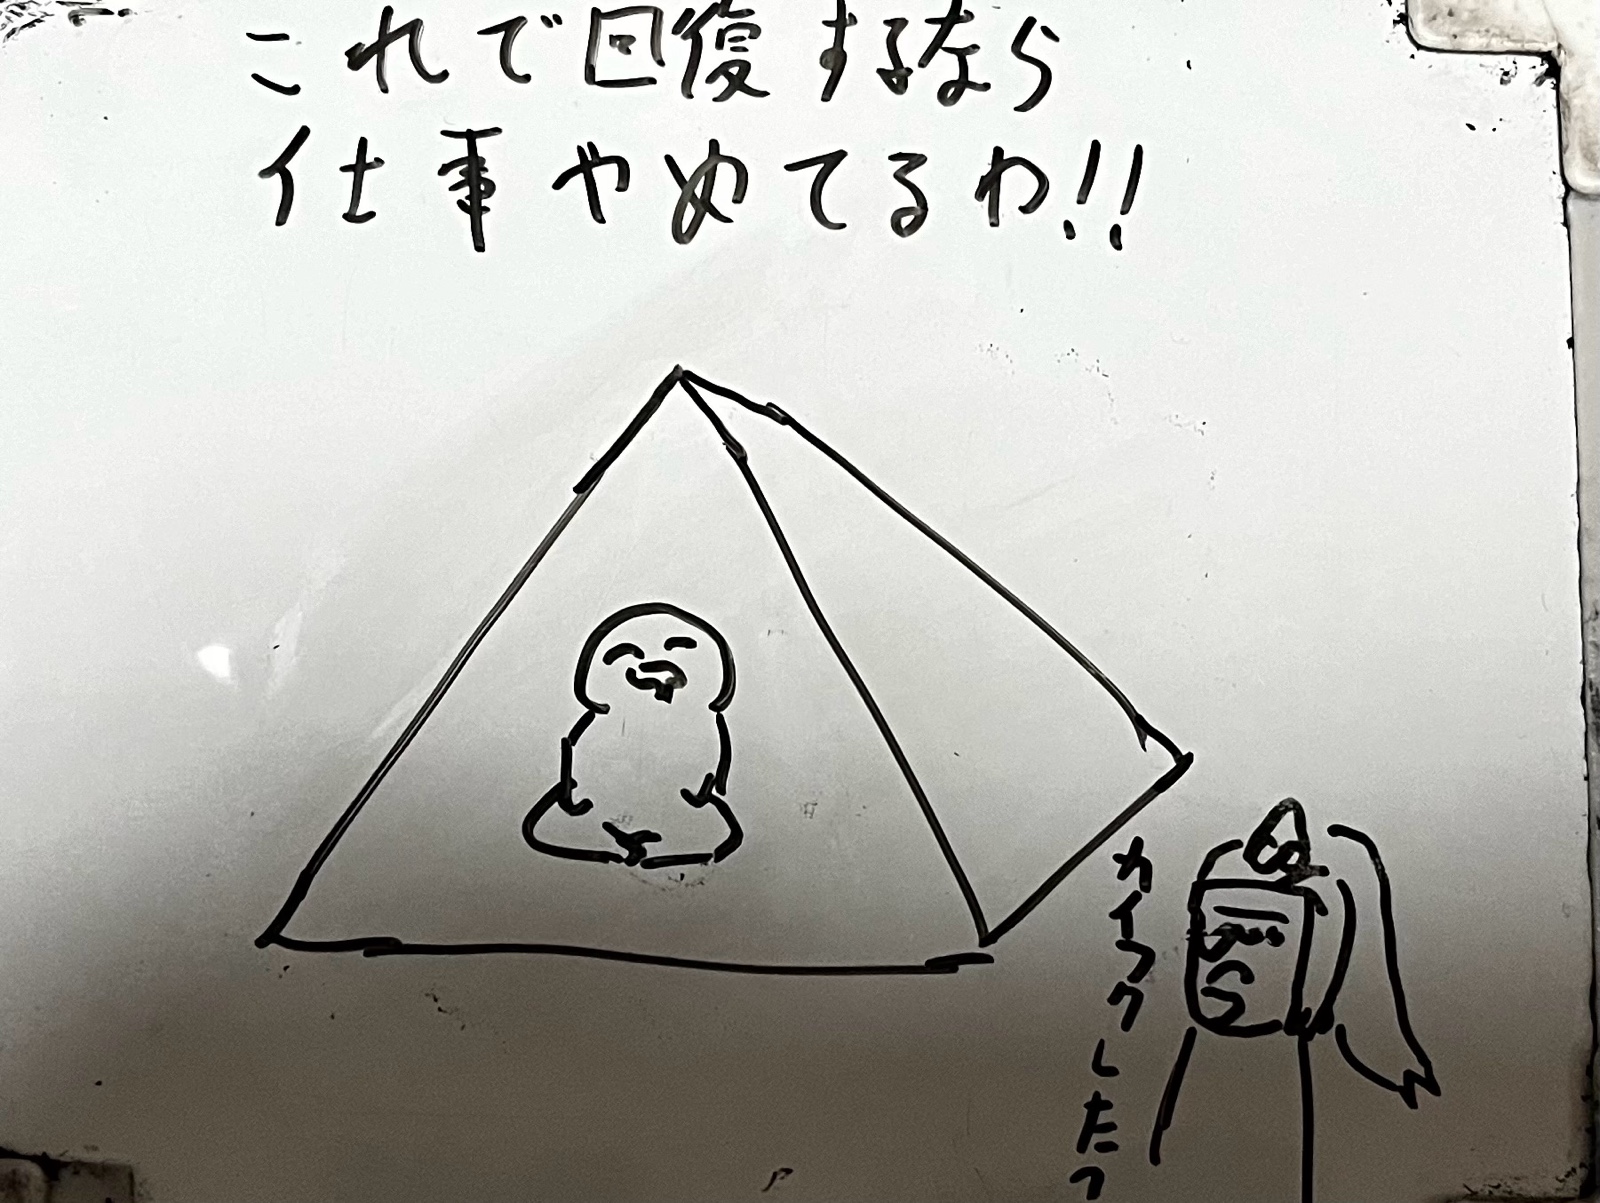 これで回復するなら
仕事やめてるわ!!
カイフクした?